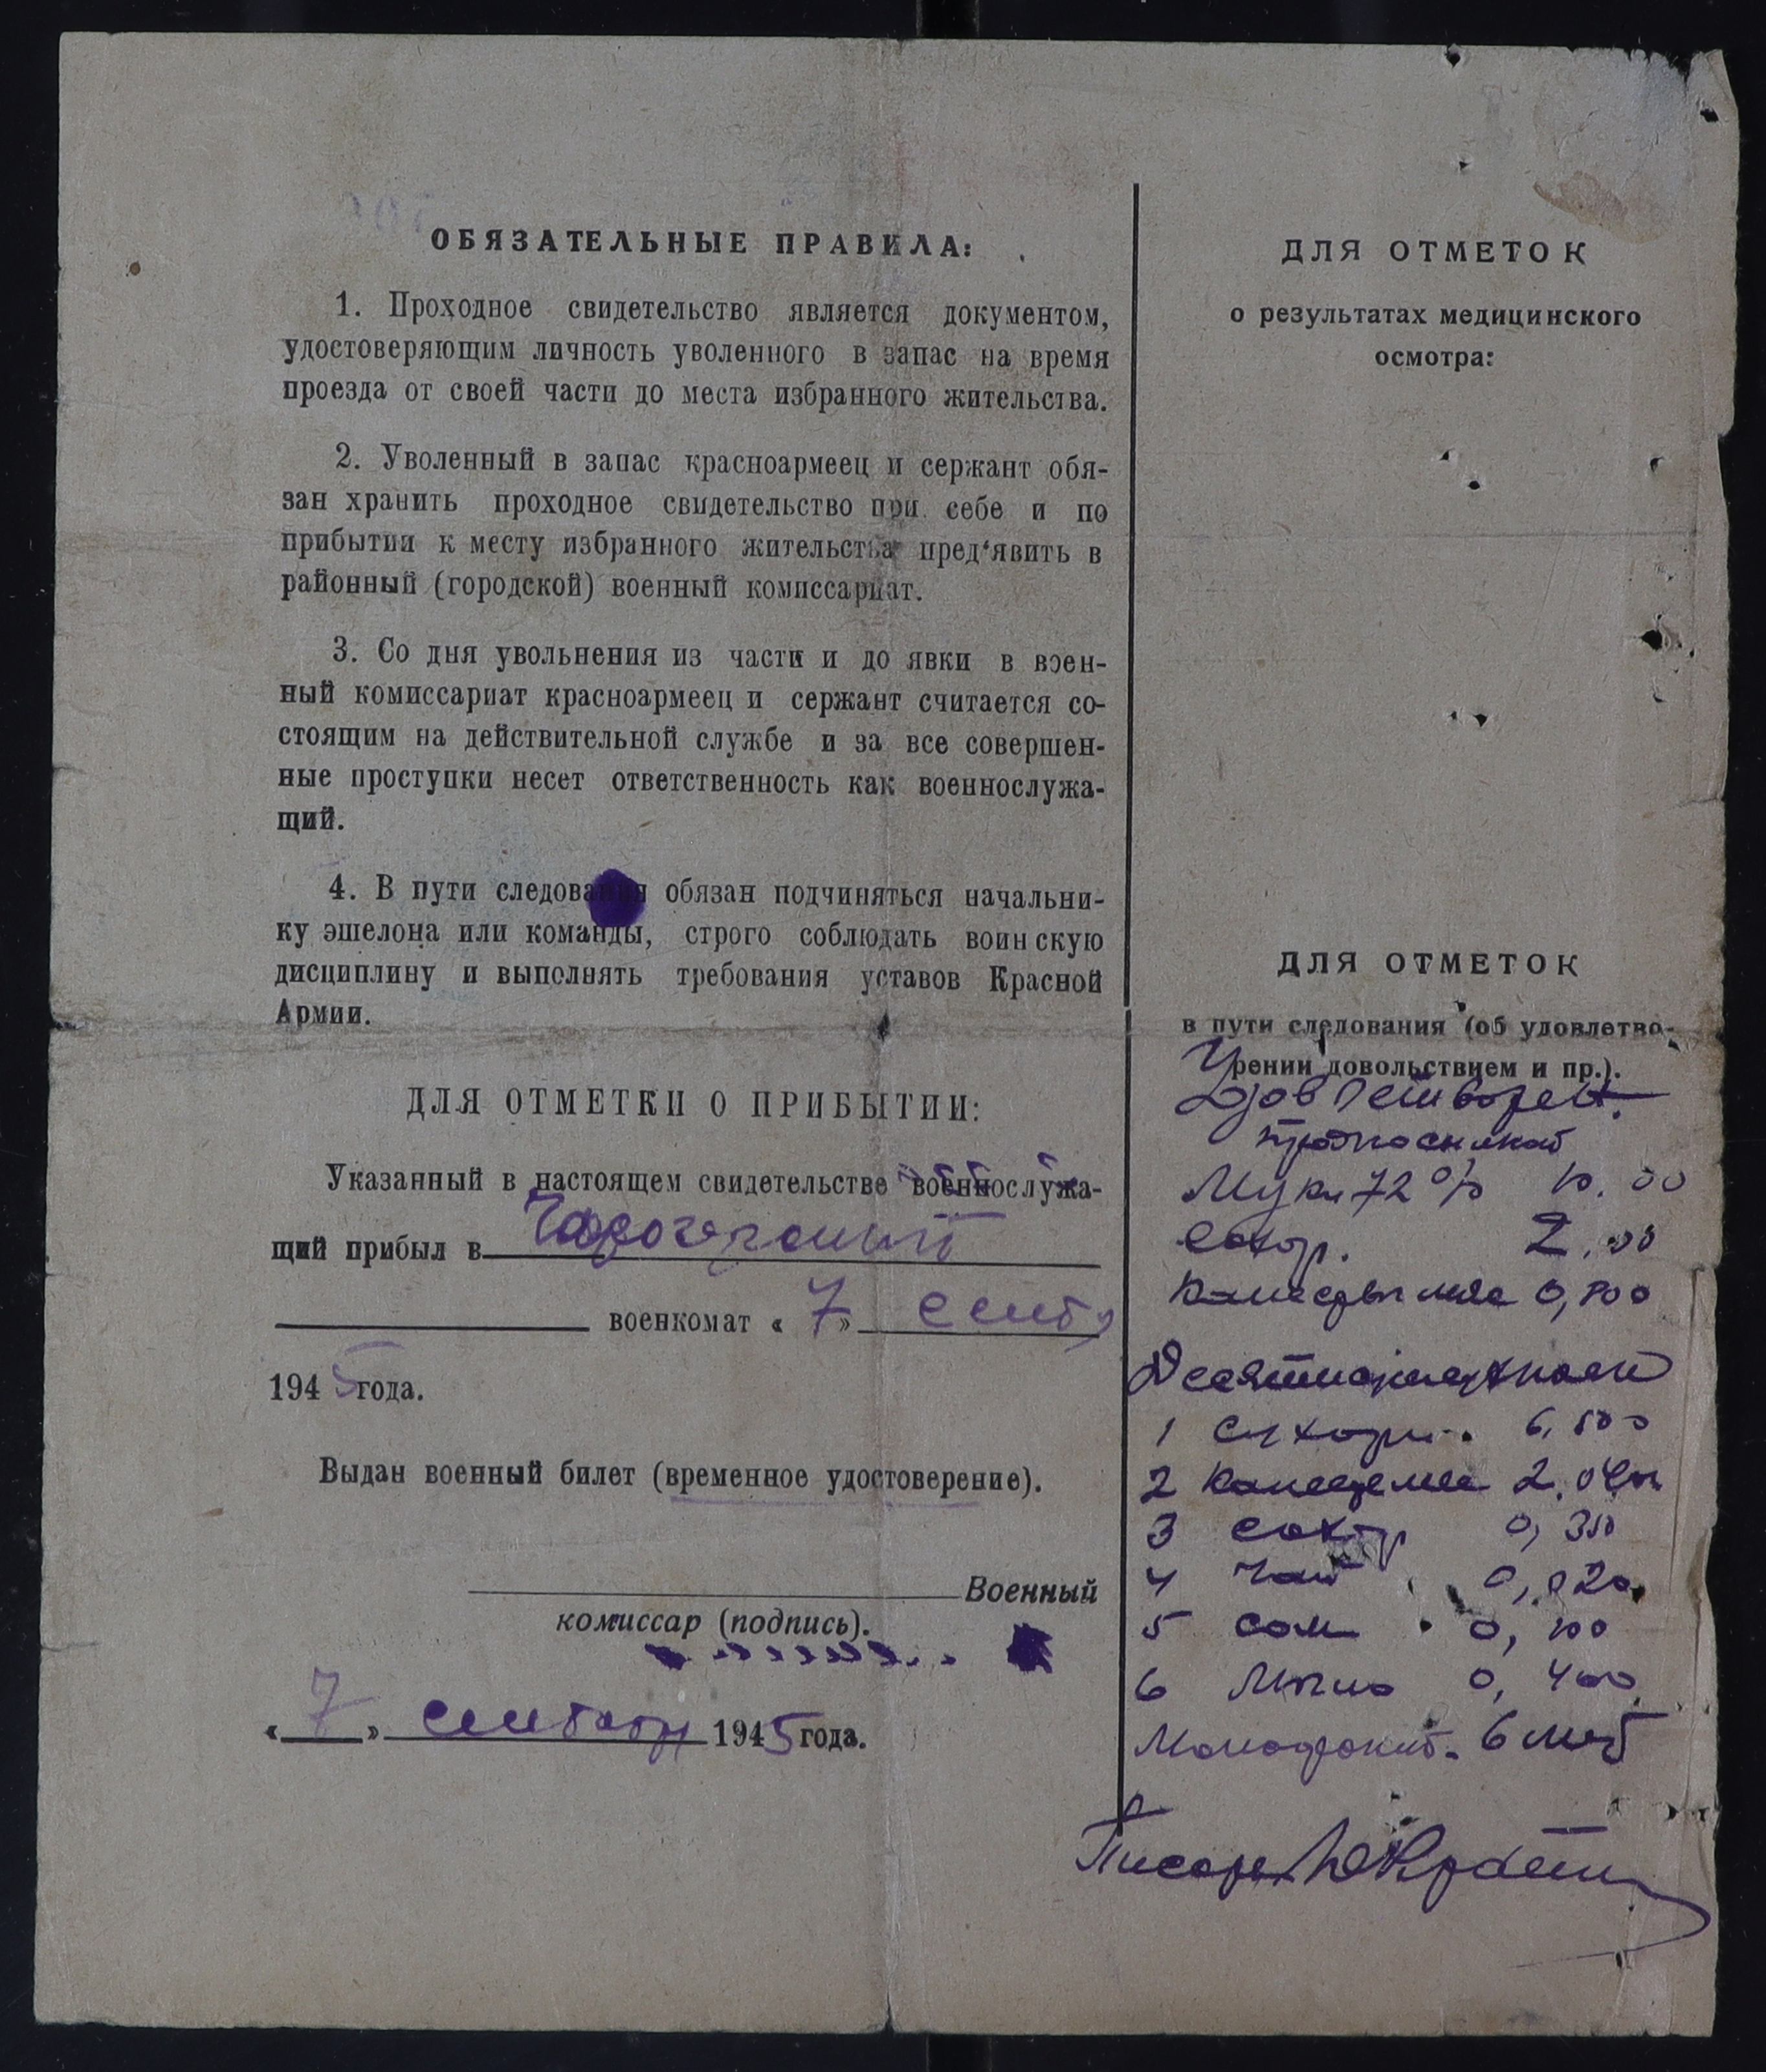 ОБЯЗАТЕЛЬНЫЕ ПРАВИЛА:
1. Проходное свидетельство является документом,
удостоверяющим личность уволенного в запас на время
проезда от своей части до места избранного жительства.
2. Уволенный в запас красноармеец и сержант обя-
зан хранить проходное свидетельство при себе и по
прибытии к месту избранного жительства пред‘явить в
районный (городской) военный комиссариат.
3. Со дня увольнения из части и до явки в воен-
ный комиссариат красноармеец и сержант считается со-
стоящим на действительной службе и за все совершен-
ные проступки несет ответственность как военнослужа-
щий.
4. В пути следования обязан подчиняться начальни-
ку эшелона или команды, строго соблюдать воинскую
дисциплину и выполнять требования уставов Красной
Армии.
ДЛЯ ОТМЕТКИ О ПРИБЫТИИ:
Указанный в настоящем свидетельстве военнослужа-
щий прибыл в
военкомат « 7 » сентб
1945 года.
Выдан военный билет (временное удостоверение).
Военный
комиссар (подпись).
« 7 » сентября 1945 года.
ДЛЯ ОТМЕТОК
о результатах медицинского
осмотра:
ДЛЯ ОТМЕТОК
в пути следования (об удовлетво-
рении довольствием и пр.).
Удовлетворен
Муки 72% 10.00
Сахар. 2.00
0,800
1 Сухари 6,500
2 2.
3 сахар 0,350
4 Чай 0,020
5 соль 0,100
6 Мыло 0,400
6
Писарь